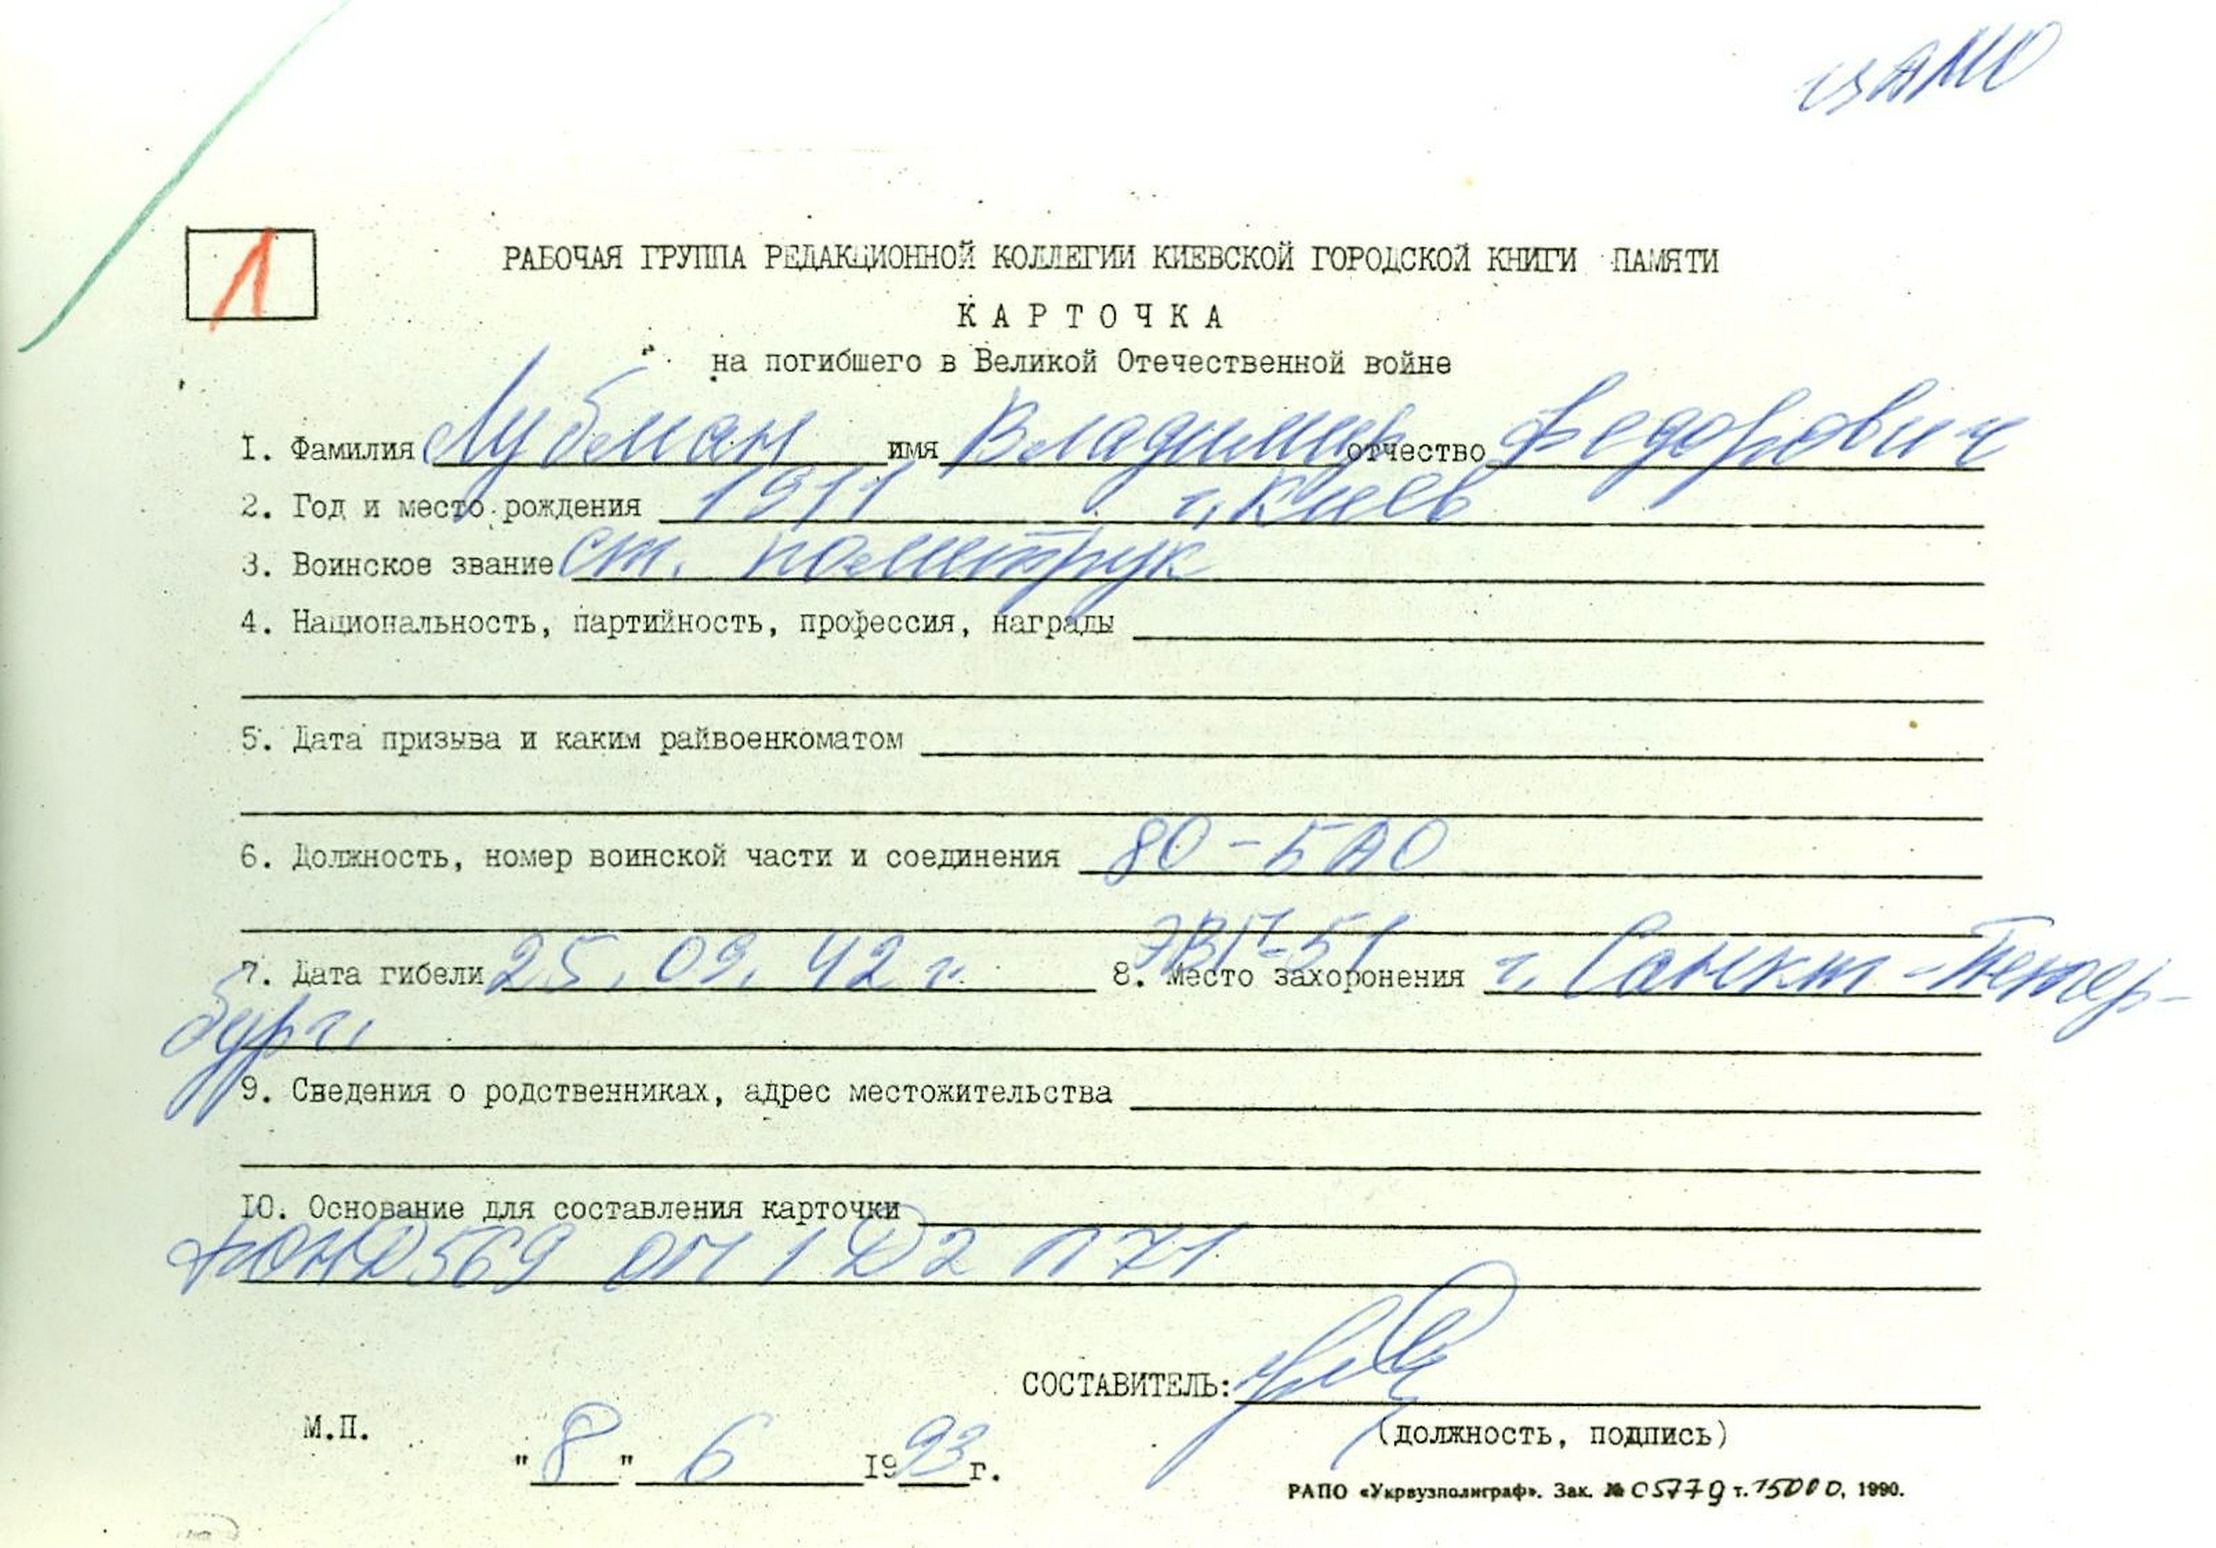 ЦАМО
1
РАБОЧАЯ ГРУППА РЕДАКЦИОННОЙ КОЛЛЕГИИ КИЕВСКОЙ ГОРОДСКОЙ КНИГИ ПАМЯТИ
КАРТОЧКА
на погибшего в Великой Отечественной войне
1. Фамилия Лубман имя Владимир отчество Федорович
2. Год и место рождения 1911 г. Киев
3. Воинское звание ст. политрук
4. Национальность, партийность, профессия, награды
5. Дата призыва и каким райвоенкоматом
6. Должность, номер воинской части и соединения 80-БАО
ЭВГ-51
7. Дата гибели 25.09.42 г. 8. Место захоронения г. Санкт-Петер-
бург.
9. Сведения о родственниках, адрес местожительства
10. Основание для составления карточки
ФОНД 569 ОП 1 Д2 Л 71
СОСТАВИТЕЛЬ:
(должность, подпись)
М.П.
"8" 6 1993 г.
РАПО «Укрвузполиграф». Зак. № 05779 т. 15000, 1990.